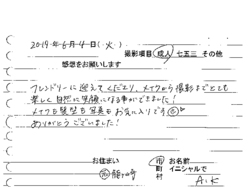 2019年6月4日(火)
撮影項目 成人 七五三 その他
感想をお願いします
フレンドリーに迎えてくださり、メイクから撮影までとても
楽しく自然に笑顔になる事ができました!
メイクも髪型も写真もお気に入りです
ありがとうございました!
お住まい
市 お名前
町 イニシャルで
村 A.K